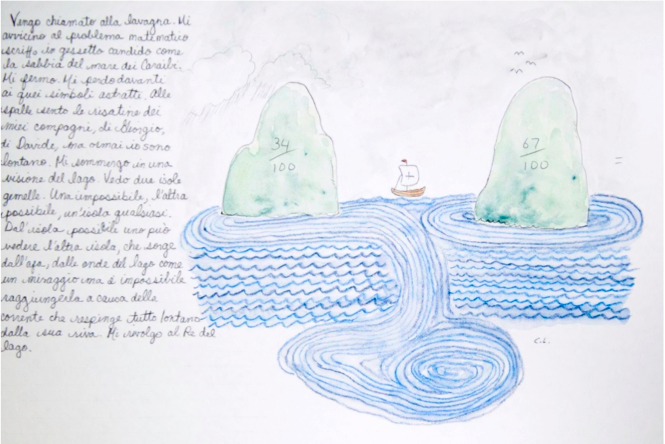 Vengo chiamato alla lavagna. Mi
avvicino al problema matematico
scritto in gessetto candido come
la sabbia del mare dei Caraibi.
Mi fermo. Mi perdo davanti
ai quei simboli astratti. Alle
spalle sento le risatine dei
miei compagni, di Georgio,
di Davide, ma ormai io sono
lontano. Mi sommergo in una
visione del lago. Vedo due isole
gemelle. Una impossibile, l'altra
possibile, un'isola qualsiasi.
Dal'isola possibile uno può
vedere l'altra isola, che sorge
dall'afa, dalle onde del lago come
un miraggio ma è impossibile
raggiungerla a causa della
corrente che respinge tutto lontano
dalla sua riva. Mi rivolgo al Re del
lago.
34
100
+
67
100
=
C.G.